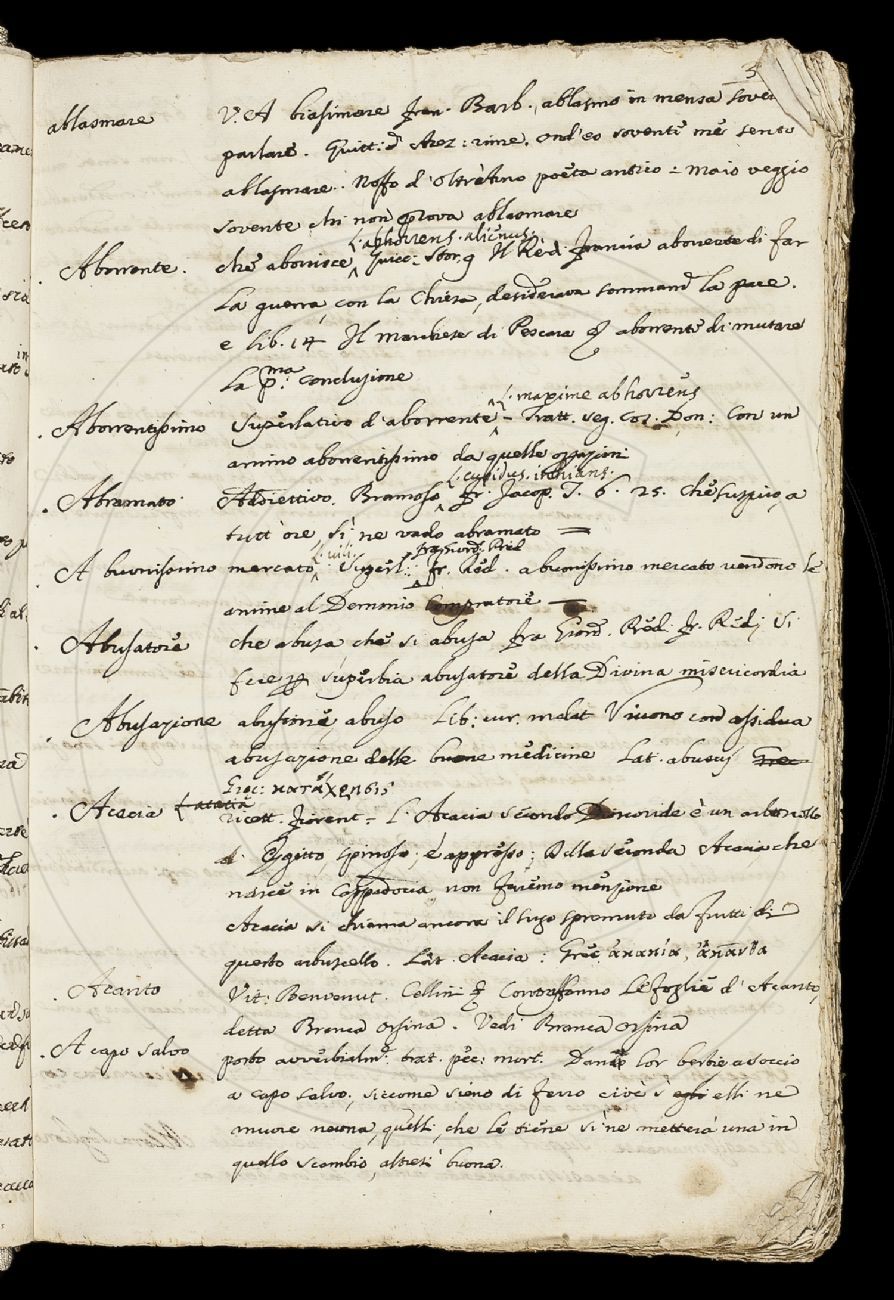 3
ablasmare V. A biasimare Fran. Barb. ablasmo in mensa sover
parlare. Guitt: d'Arez: rime. ond'eo sovente me sento
ablasmare. Noffo d'Oltr'Arno poeta antico = maio veggio
sovente chi non prova ablasmare
L. abhorrens. alienus.
Aborrente. che aborrisce, Guicc: Stor. 9 Il Re di Francia aborrente di far
la guerra, con la Chiesa, desiderava la pace.
e lib. 14 Il Marchese di Pescara aborrente di mutare
la p.ma conclusione
L. maxime abhorrens
Aborrentissimo Superlativo d'aborrente - Tratt. seg. cos: Don: Con un
animo aborrentissimo da quelle orazioni
L. cupidus. inhians.
Abramato Addiettivo. Bramoso Fr. Jacop. T. 6. 25. che suspiro, a
tutt'ore, sì ne vado abramato =
L. vili. fra Giord. Pred
A buonissimo mercato Superl: Fr. Red. a buonissimo mercato vendono le
anime al Demonio Compratore =
Abusatore che abusa che si abusa Fra Giord. Pred. Fr. Red; Si
fece superbia abusatore della Divina misericordia
Abusazione abusione, abuso Lib: cur. malat Vivono con assidua
abusazione delle buone medicine Lat. abusus Grec
Grec: κατάχρησις
Acacia L'acacia ricett. Fiorent = L'Acacia secondo Dioscoride è un arboscello
d'Egitto, spinoso, è appresso; Della seconda Acacia che
nasce in Cappadocia non faremo menzione
Acacia si chiama ancora il sugo spremuto da frutti di
questo arbuscello. Lat. Acacia: Grec ἀκακία,
Acanto Vit: Benvenut. Cellini Contraffanno le foglie d'Acanto,
detta Branca orsina. Vedi Branca orsina
A capo salvo posto avverbialm: trat. pec: mort. Danno lor bestie a soccio
a capo salvo, siccome sieno di ferro cioè s'egli elli ne
muore neuna, quelli, che le tiene si ne metterà una in
quello scambio, altresì buona.